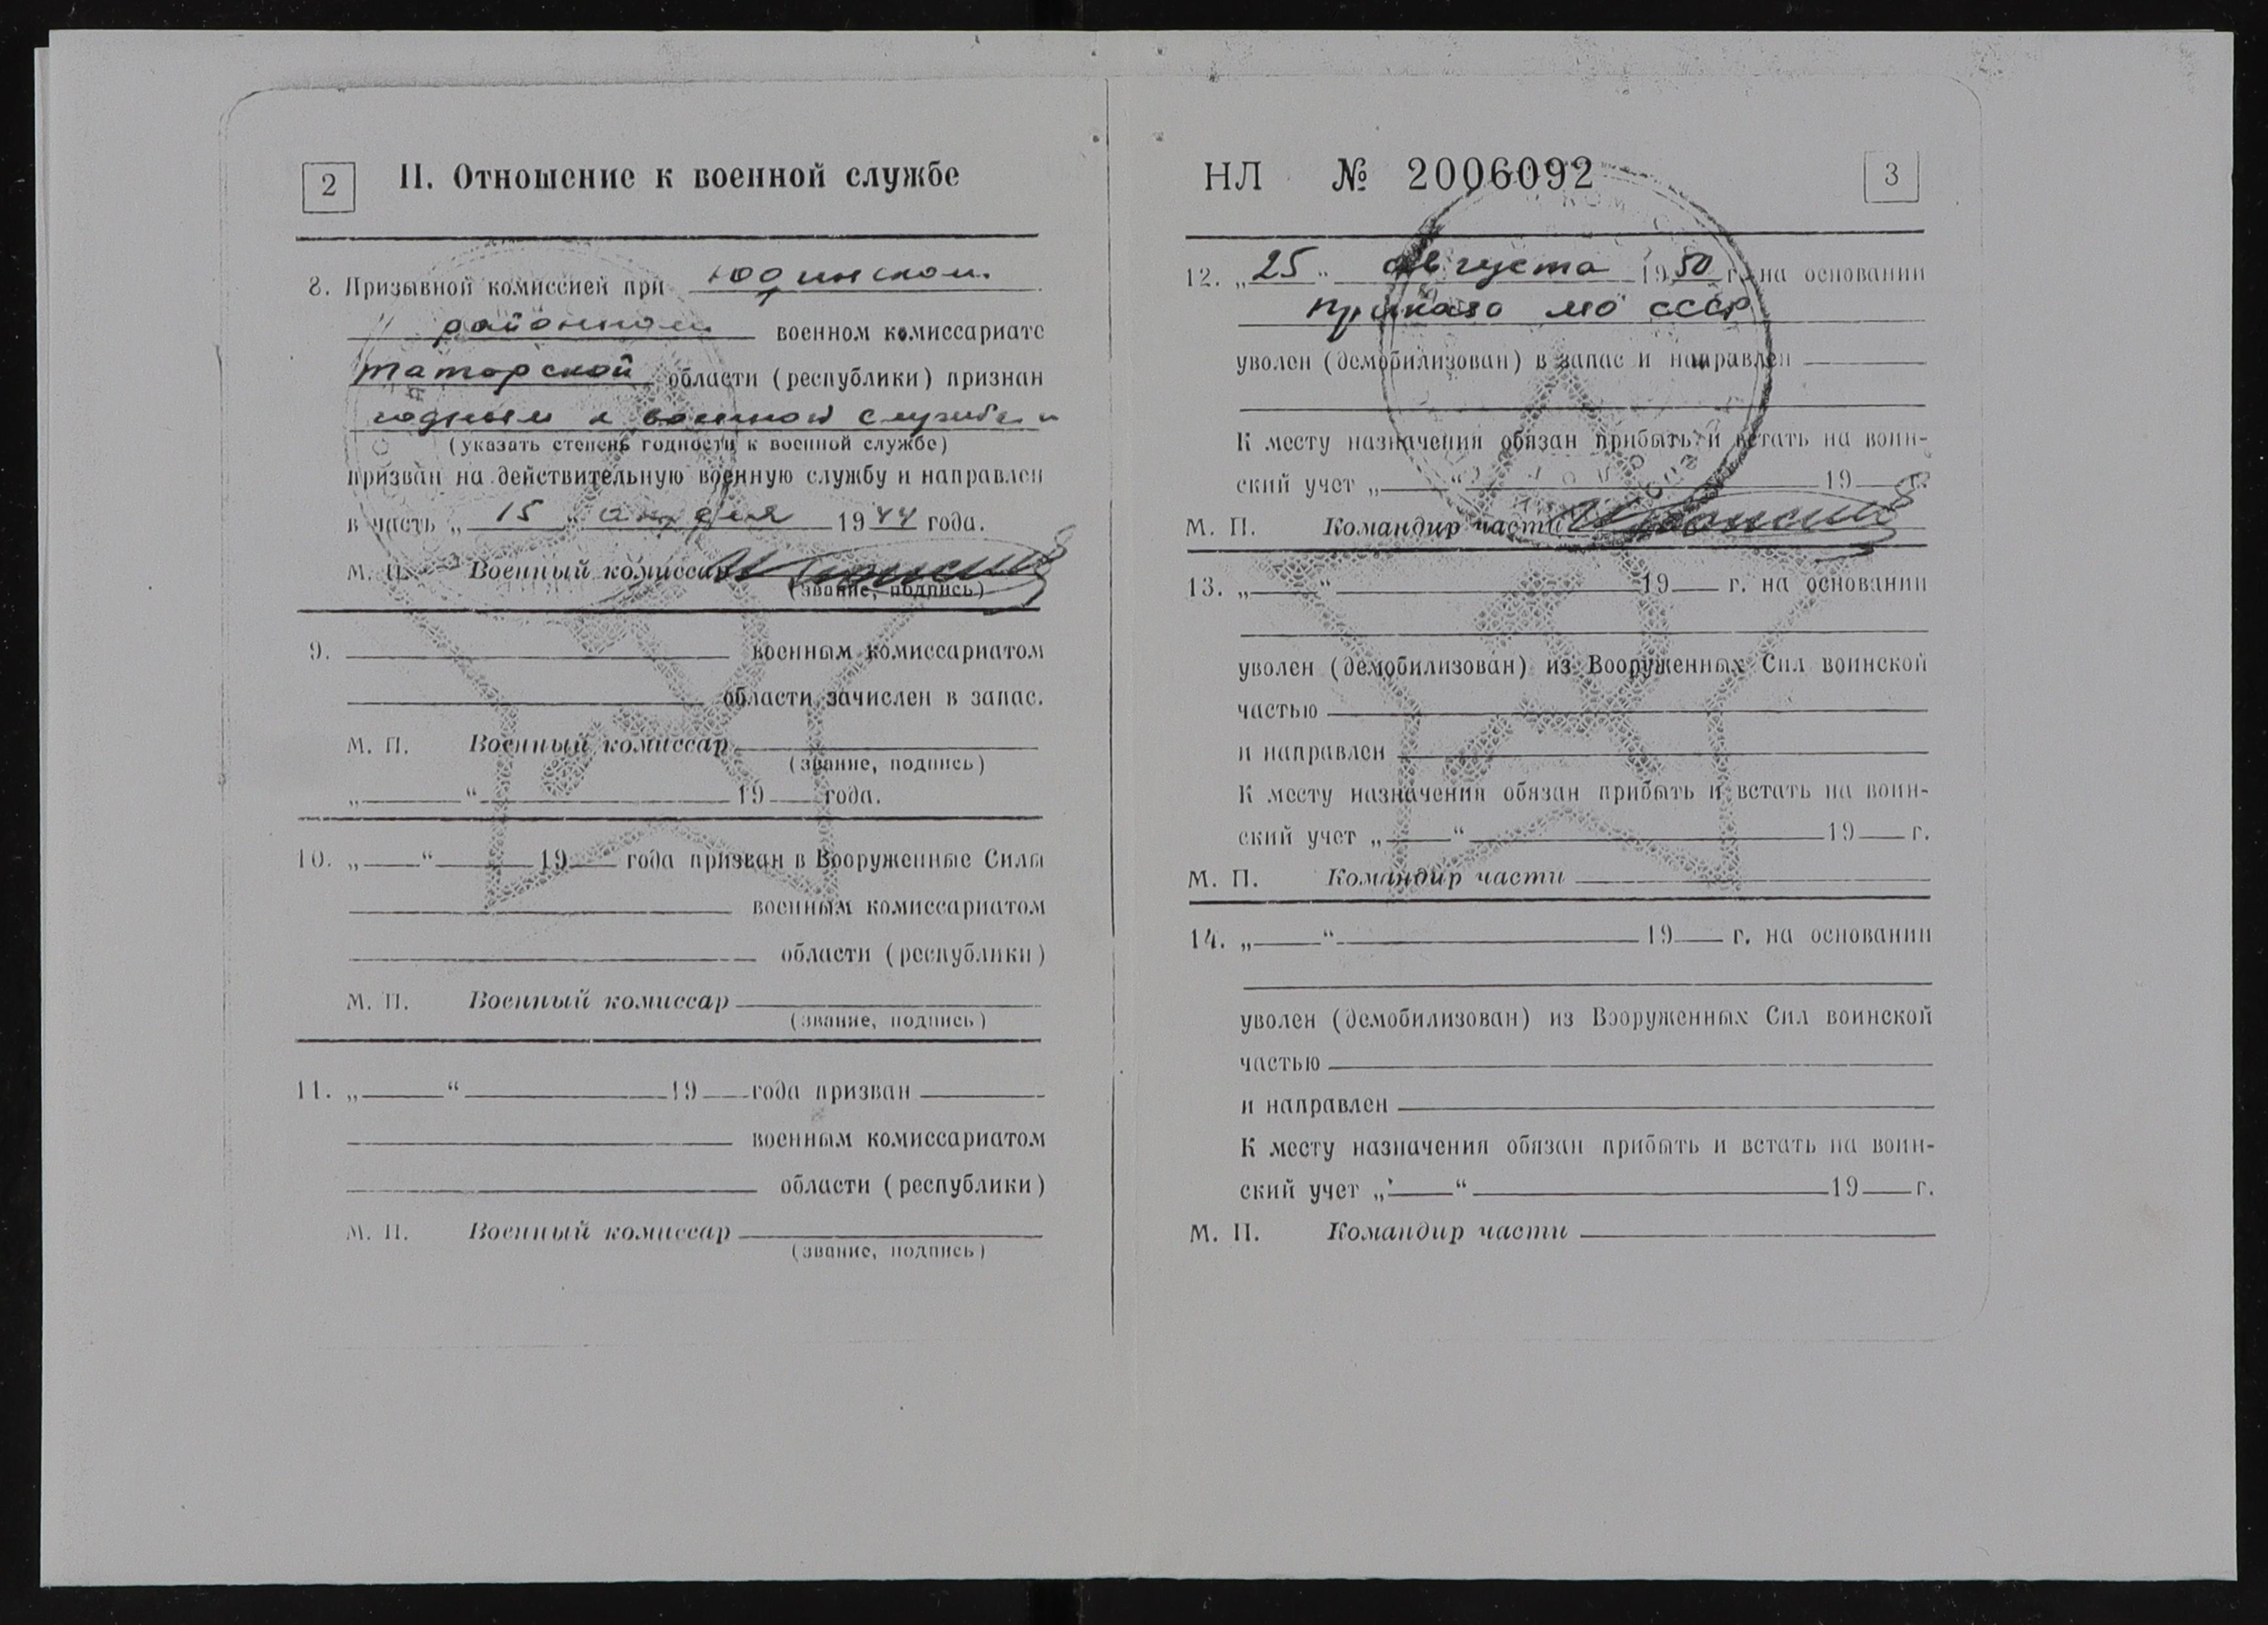 2
II. Отношение к военной службе
8. Призывной комиссией при Юдинском
районном военном комиссариате
Татарской области (республики) признан
годным к военной службе и
(указать степень годности к военной службе)
призван на действительную военную службу и направлен
в часть „ 15 “ апреля 1944 года.
М. П. Военный комиссар
(звание, подпись)
9. военным комиссариатом
области зачислен в запас.
М. П. Военный комиссар
(звание, подпись)
„ “ 19 года.
10. „ “ 19 года призван в Вооруженные Силы
военным комиссариатом
области (республики)
М. П. Военный комиссар
(звание, подпись)
11. „ “ 19 года призван
военным комиссариатом
области (республики)
М. П. Военный комиссар
(звание, подпись)
НЛ № 2006092
3
12. „ 25 “ августа 1950 г. на основании
приказа МО СССР
уволен (демобилизован) в запас и направлен
К месту назначения обязан прибыть и встать на воин-
ский учет „ “ 19 г.
М. П. Командир части
13. „ “ 19 г. на основании
уволен (демобилизован) из Вооруженных Сил воинской
частью
и направлен
К месту назначения обязан прибыть и встать на воин-
ский учет „ “ 19 г.
М. П. Командир части
14. „ “ 19 г. на основании
уволен (демобилизован) из Вооруженных Сил воинской
частью
и направлен
К месту назначения обязан прибыть и встать на воин-
ский учет „ “ 19 г.
М. П. Командир части